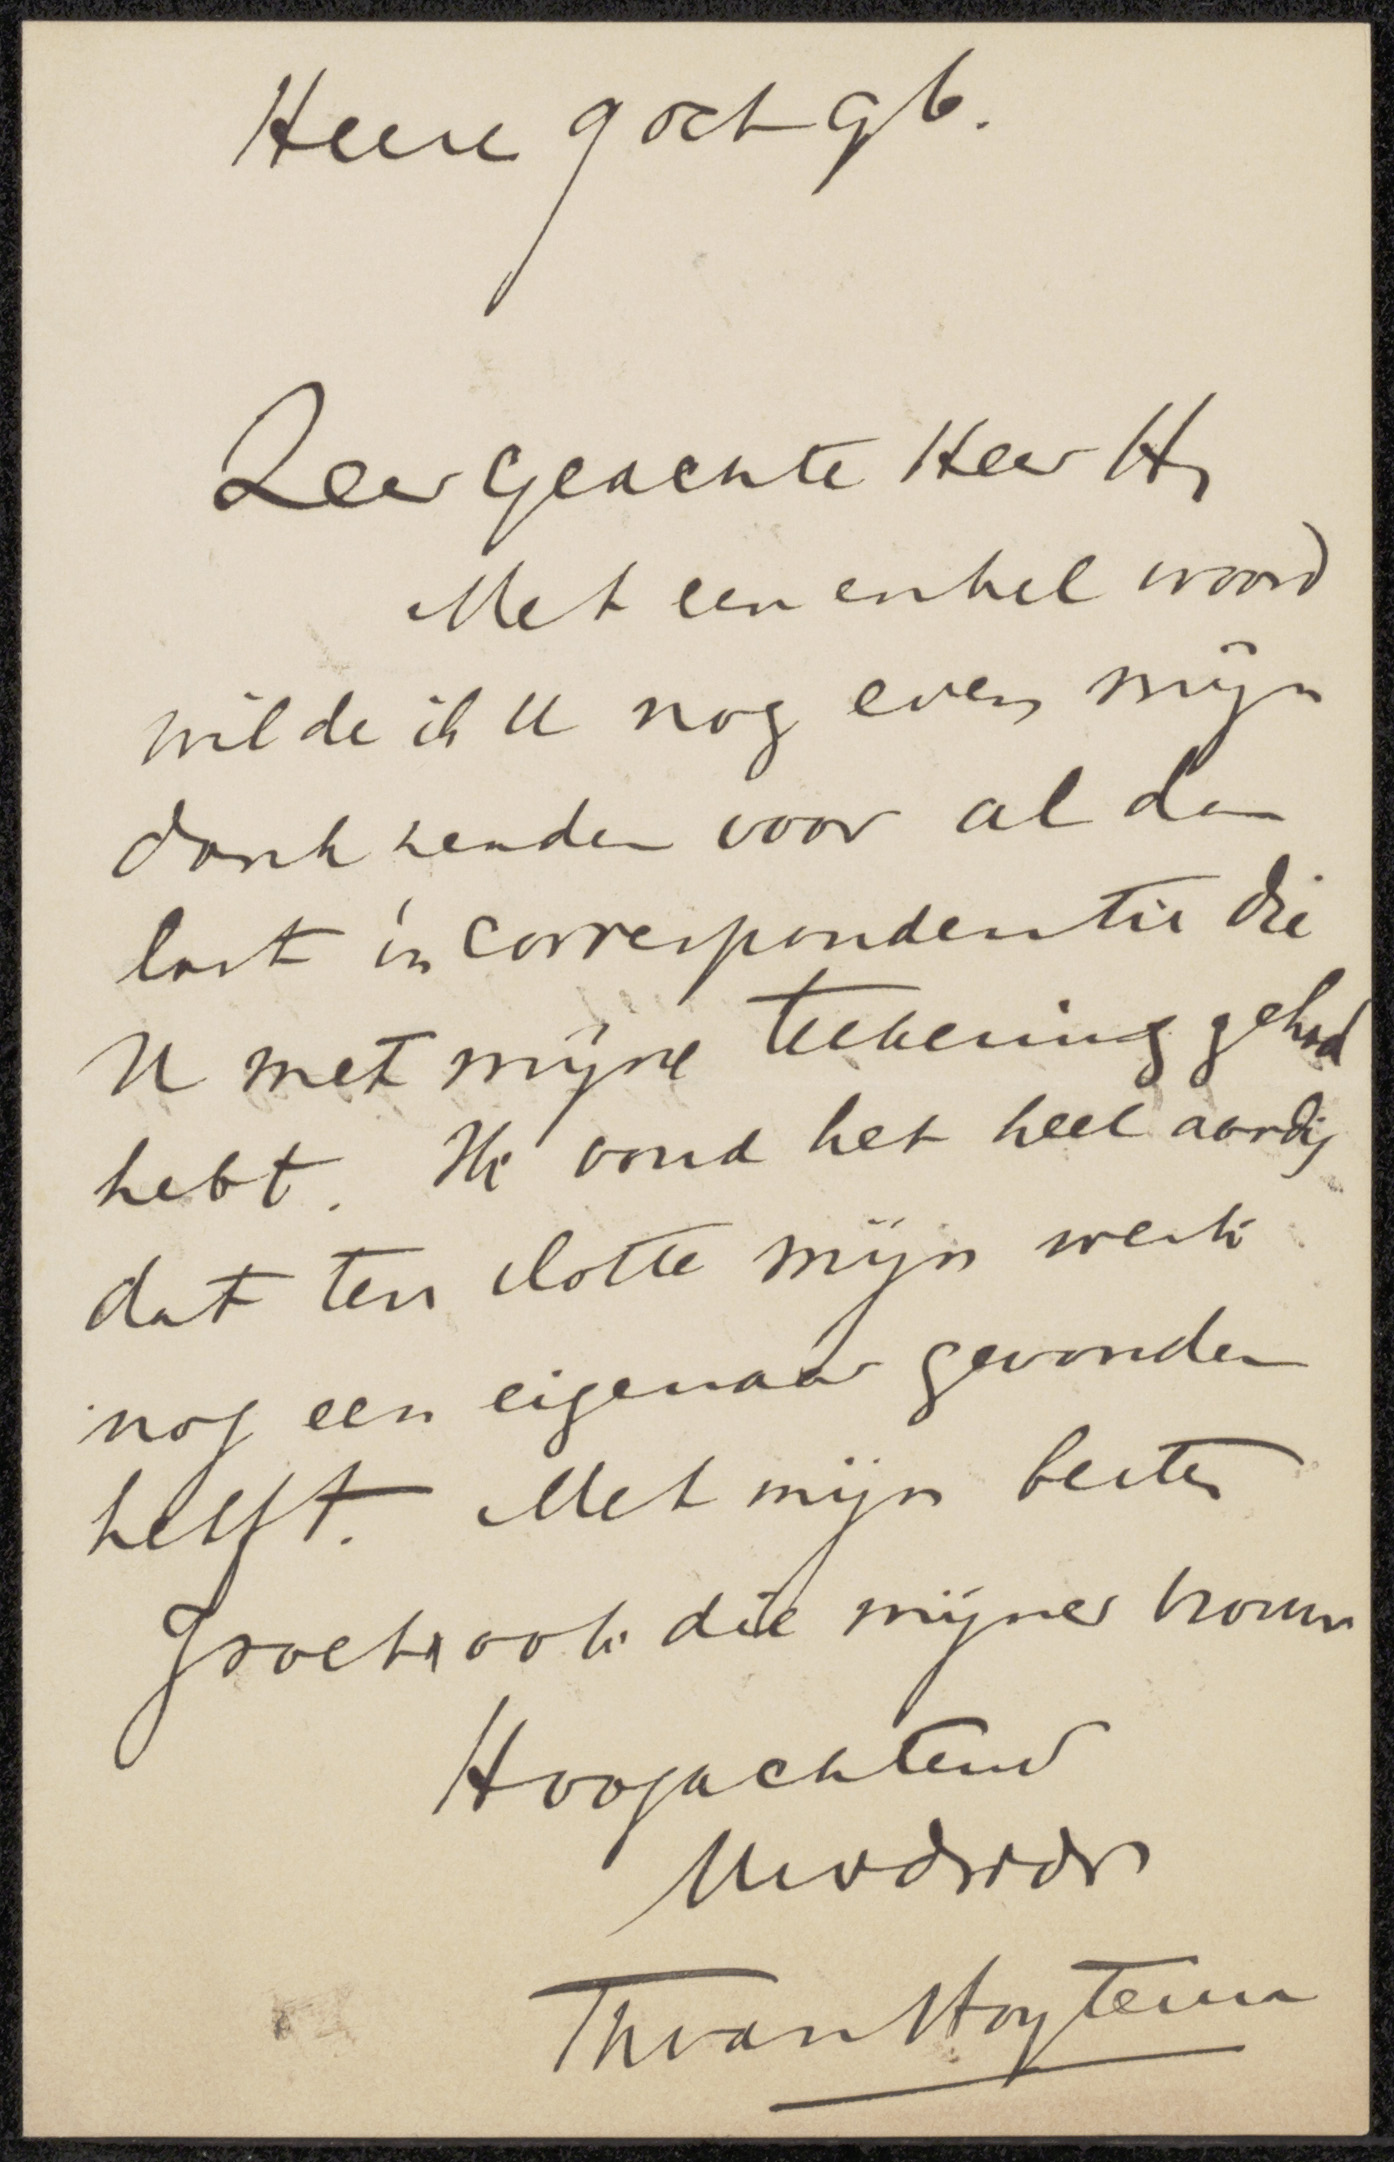 Heeze 9 oct 96.
Zeer geachte Heer H,
Met een enkel woord
wilde ik U nog even mijn
dank zenden voor al den
last in correspondentie die
U met mijne teekening gehad
hebt. Ik vond het heel aardig
dat ten slotte mijn werk
nog een eigenaar gevonden
heeft. Met mijn besten
groet, ook die mijner vrouw
Hoogachtend
Uwdwdr
Th van Hoytema